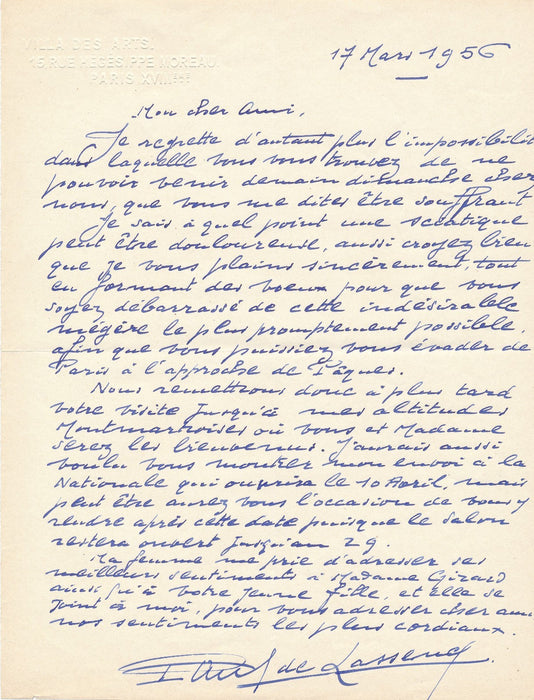 VILLA DES ARTS.
15, RUE HÉGÉSIPPE MOREAU.
PARIS XVIIIÈME
17 Mars 1956
Mon cher Ami,
Je regrette d'autant plus l'impossibilit
dans laquelle vous vous trouvez de ne
pouvoir venir demain dimanche chez
nous, que vous me dites être souffrant
Je sais à quel point une sciatique
peut être douloureuse, aussi croyez bien
que je vous plains sincèrement, tout
en formant des voeux pour que vous
soyez débarrassé de cette indésirable
mégère le plus promptement possible.
afin que vous puissiez vous évader de
Paris à l'approche de Pâques.
Nous remettrons donc à plus tard
votre visite jusqu'à mes altitudes
Montmartroises où vous et Madame
serez les bienvenus. J'aurais aussi
voulu vous montrer mon envoi à la
Nationale qui ouvrira le 10 Avril, mais
peut être aurez vous l'occasion de vous y
rendre après cette date puisque le Salon
restera ouvert jusqu'au 29.
Ma femme me prie d'adresser ses
meilleurs sentiments à Madame Girard
ainsi qu'à votre jeune fille, et elle se
joint à moi, pour vous adresser cher ami
nos sentiments les plus cordiaux.
Paul de Lassence.